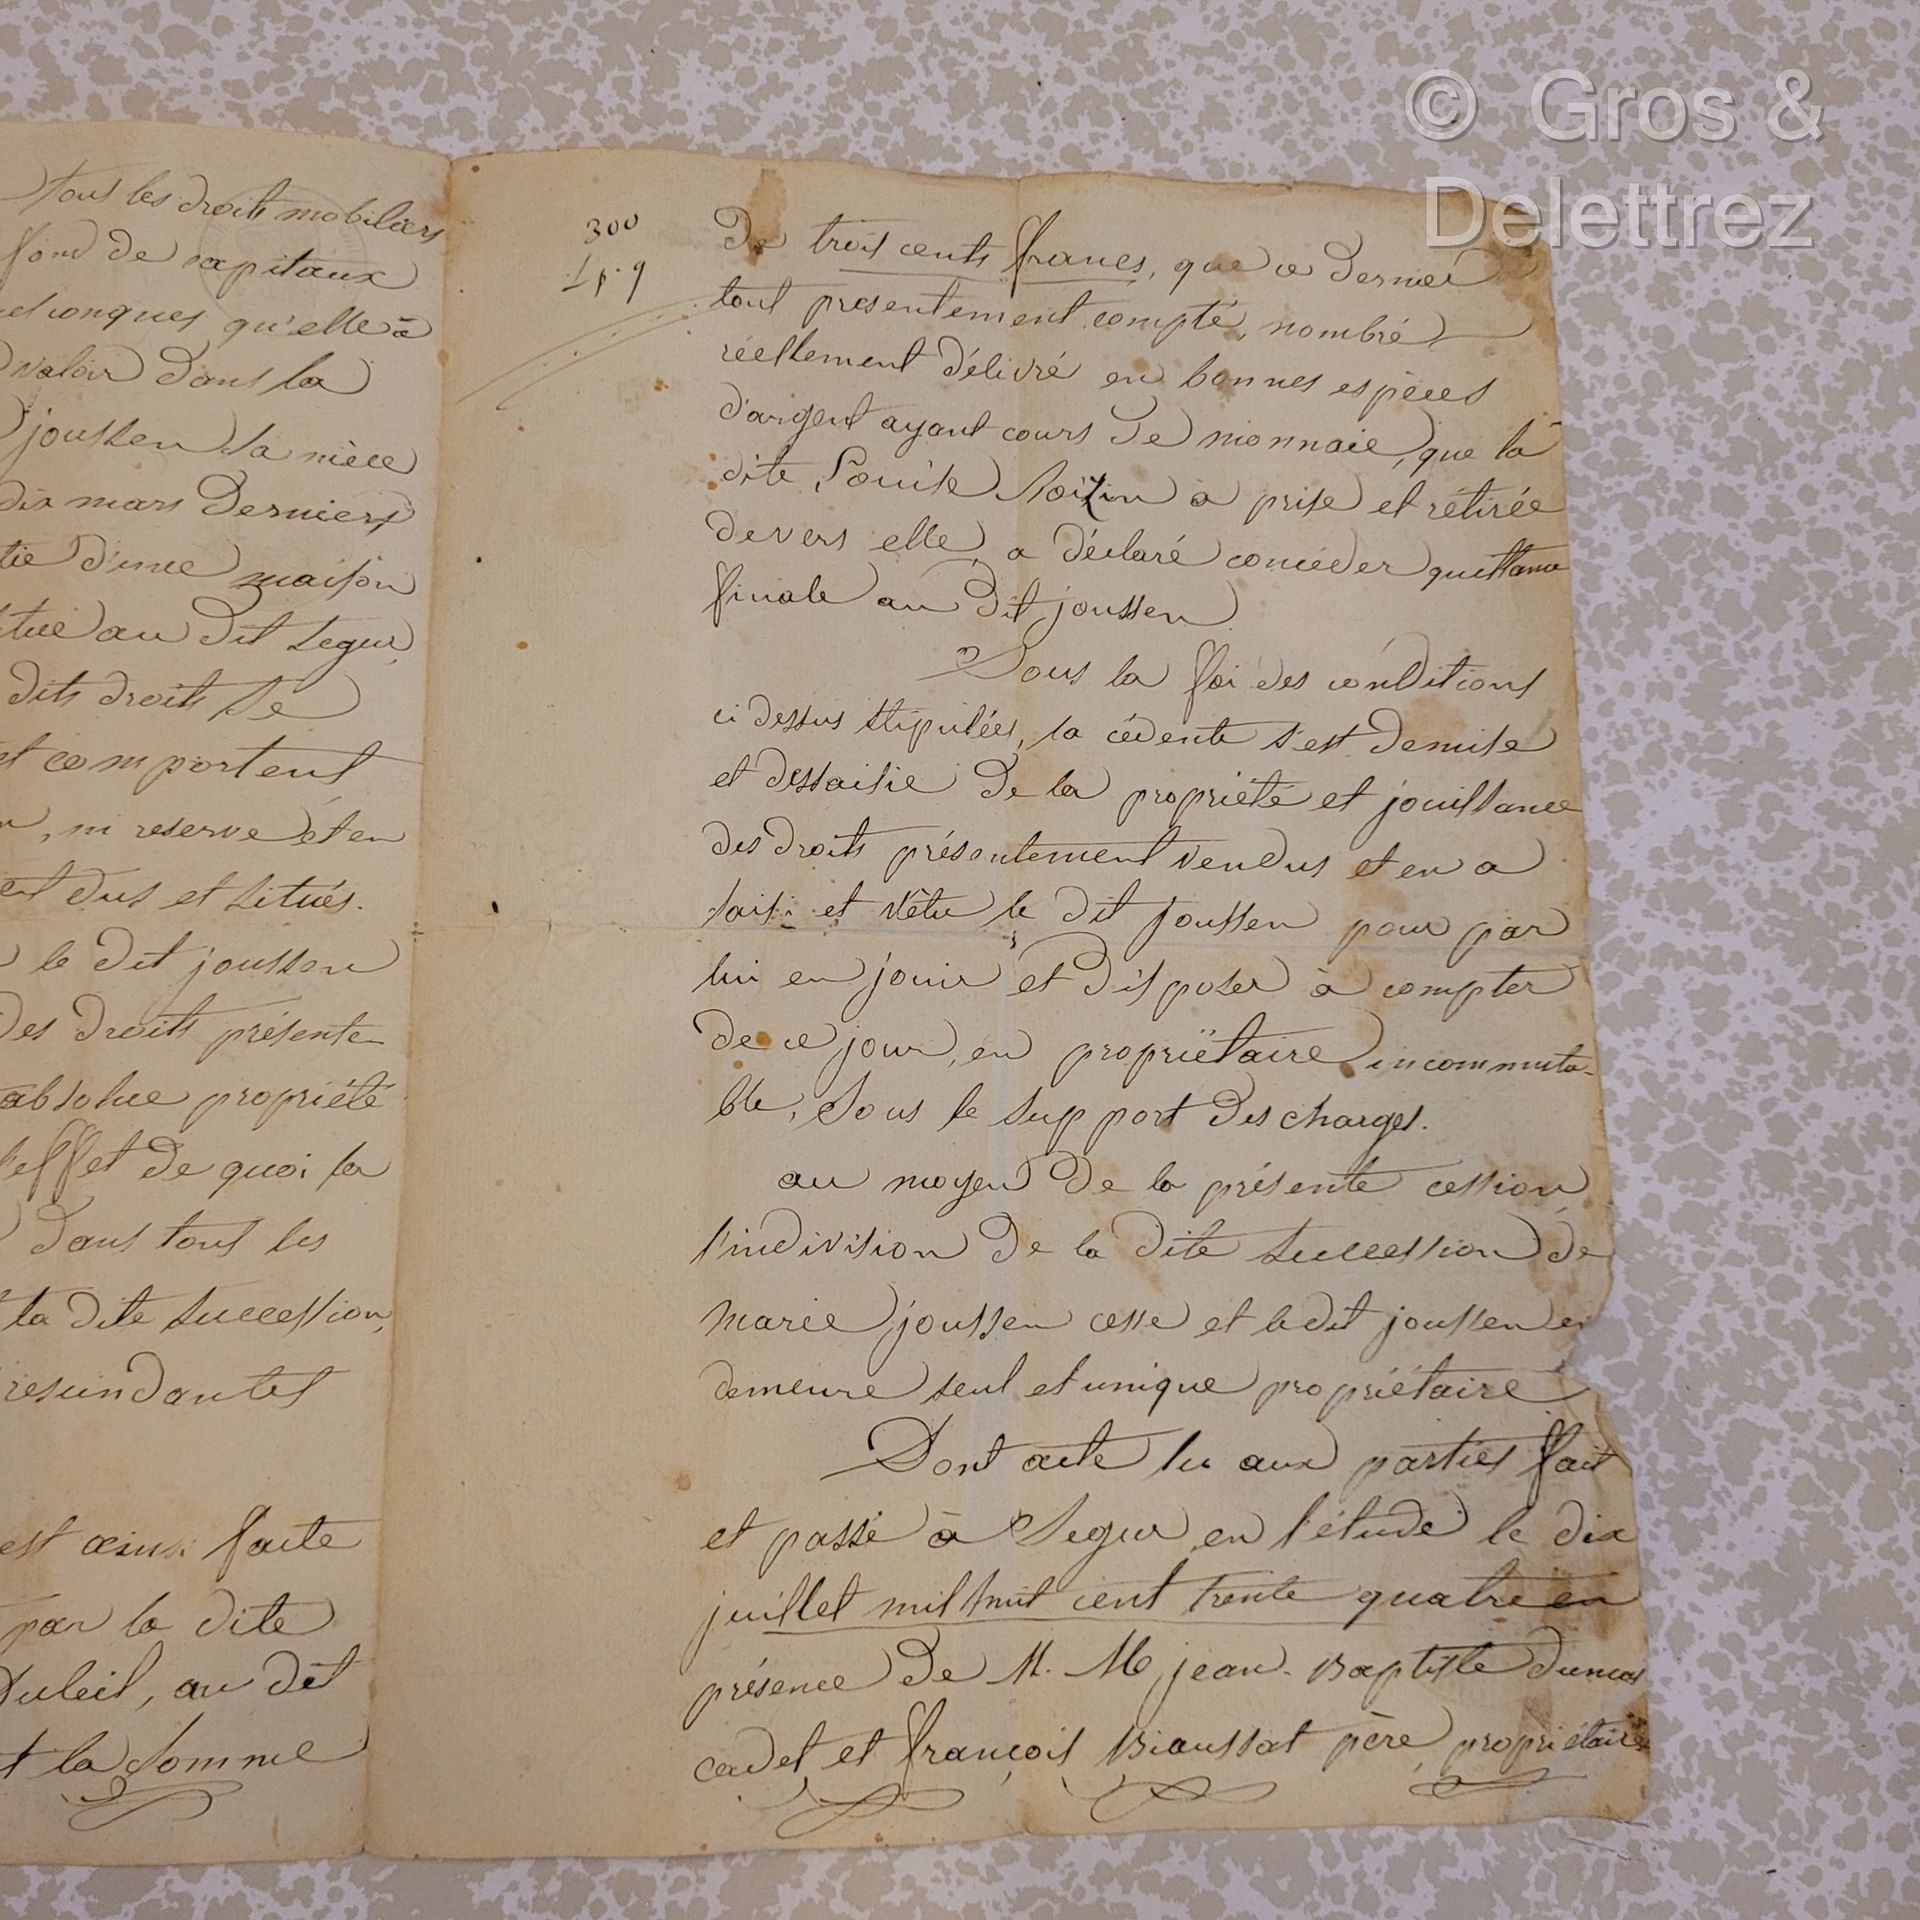 tous les droits mobiliers
fond de capitaux
qu'elle a
valoir dans la
joussen sa nièce
dix mars derniers
d'une maison
au dit segur,
dits droits se
et comportent
ni reserve et en
dus et situés.
le dit joussen
des droits présente-
absolue propriété
l'effet de quoi la
dans tous les
la dite succession,
est ainsi faite
par la dite
au dit
la somme
300
de trois cents francs, que ce dernier
tout presentement compté, nombré
réellement délivré en bonnes espèces
d'argent ayant cours de monnaie, que la
dite Louise a prise et rétirée
devers elle, a déclaré concéder quittance
finale au dit joussen
Sous la foi des conditions
ci dessus stipulées, la cédente s'est demise
et dessaisie de la propriété et jouissance
des droits présentement vendus et en a
saisi et vêtu le dit joussen pour par
lui en jouir et disposer à compter
de ce jour, en propriétaire incommuta-
ble, sous le support des charges.
au moyen de la présente cession
l'indivision de la dite succession de
marie joussen cesse et ledit joussen en
demeure seul et unique propriétaire
Dont acte lu aux parties fait
et passé à Segur en l'étude le dix
juillet mil huit cent trente quatre en
présence de M. M jean-Baptiste dumas
cadet et françois Biaussat père, propriétaires
© Gros &
Delettrez